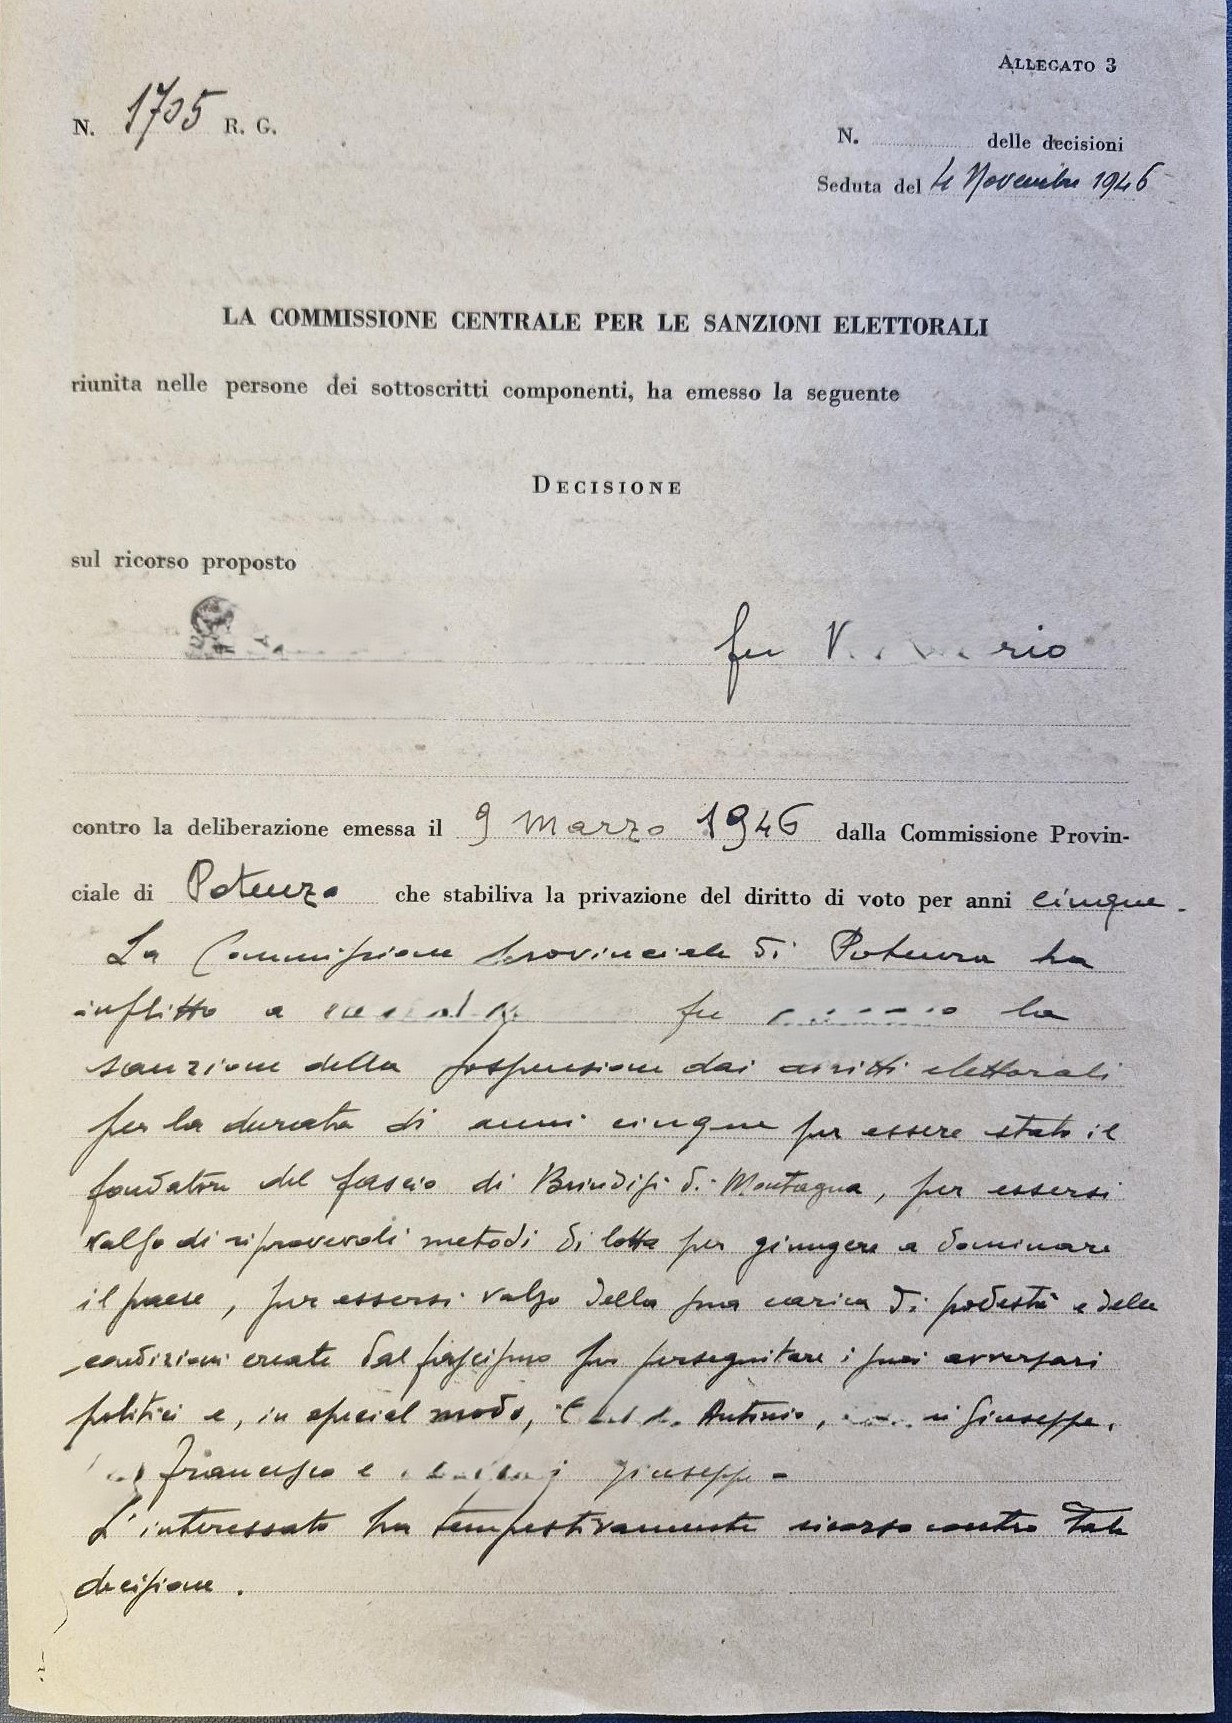 ALLEGATO 3
N. 1705 R. G.
N. delle decisioni
Seduta del 4 Novembre 1946
LA COMMISSIONE CENTRALE PER LE SANZIONI ELETTORALI
riunita nelle persone dei sottoscritti componenti, ha emesso la seguente
DECISIONE
sul ricorso proposto
fu
contro la deliberazione emessa il 9 Marzo 1946 dalla Commissione Provin-
ciale di Potenza che stabiliva la privazione del diritto di voto per anni cinque.
La Commissione Provinciale di Potenza ha
inflitto a fu la
sanzione della sospensione dai diritti elettorali
per la durata di anni cinque per essere stato il
fondatore del fascio di Brindisi di Montagna, per essersi
valso di riprovevoli metodi di lotta per giungere a dominare
il paese, per essersi valso della sua carica di podestà e delle
condizioni create dal fascismo per perseguitare i suoi avversari
politici e, in special modo, Antonio, Giuseppe,
Francesco e Giuseppe.
L'interessato ha tempestivamente ricorso contro tale
decisione.